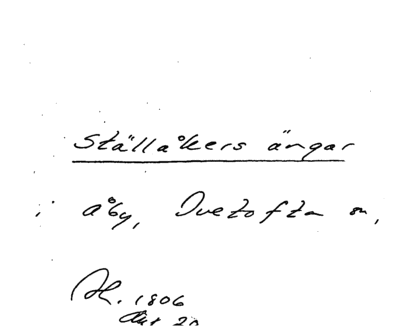 Ställåkers ängar
i Åby, Ivetofta sn,
Ak. 1806
Akt 20